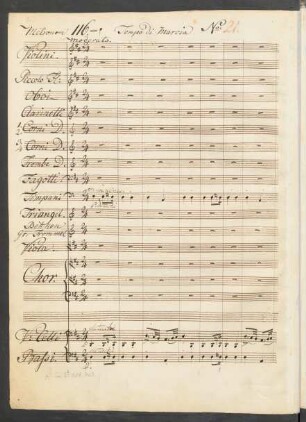 116 Tempo di Marcia No 21.
moderato.
Violini.
Piccolo Fl.
Oboi.
Clarinetti
Corni D.
Corni D.
Trombe D.
Fagotti
Timpani
Triangel.
Becken
Gr. Trommel
Viola
Chor.
V. Celli
Bassi.